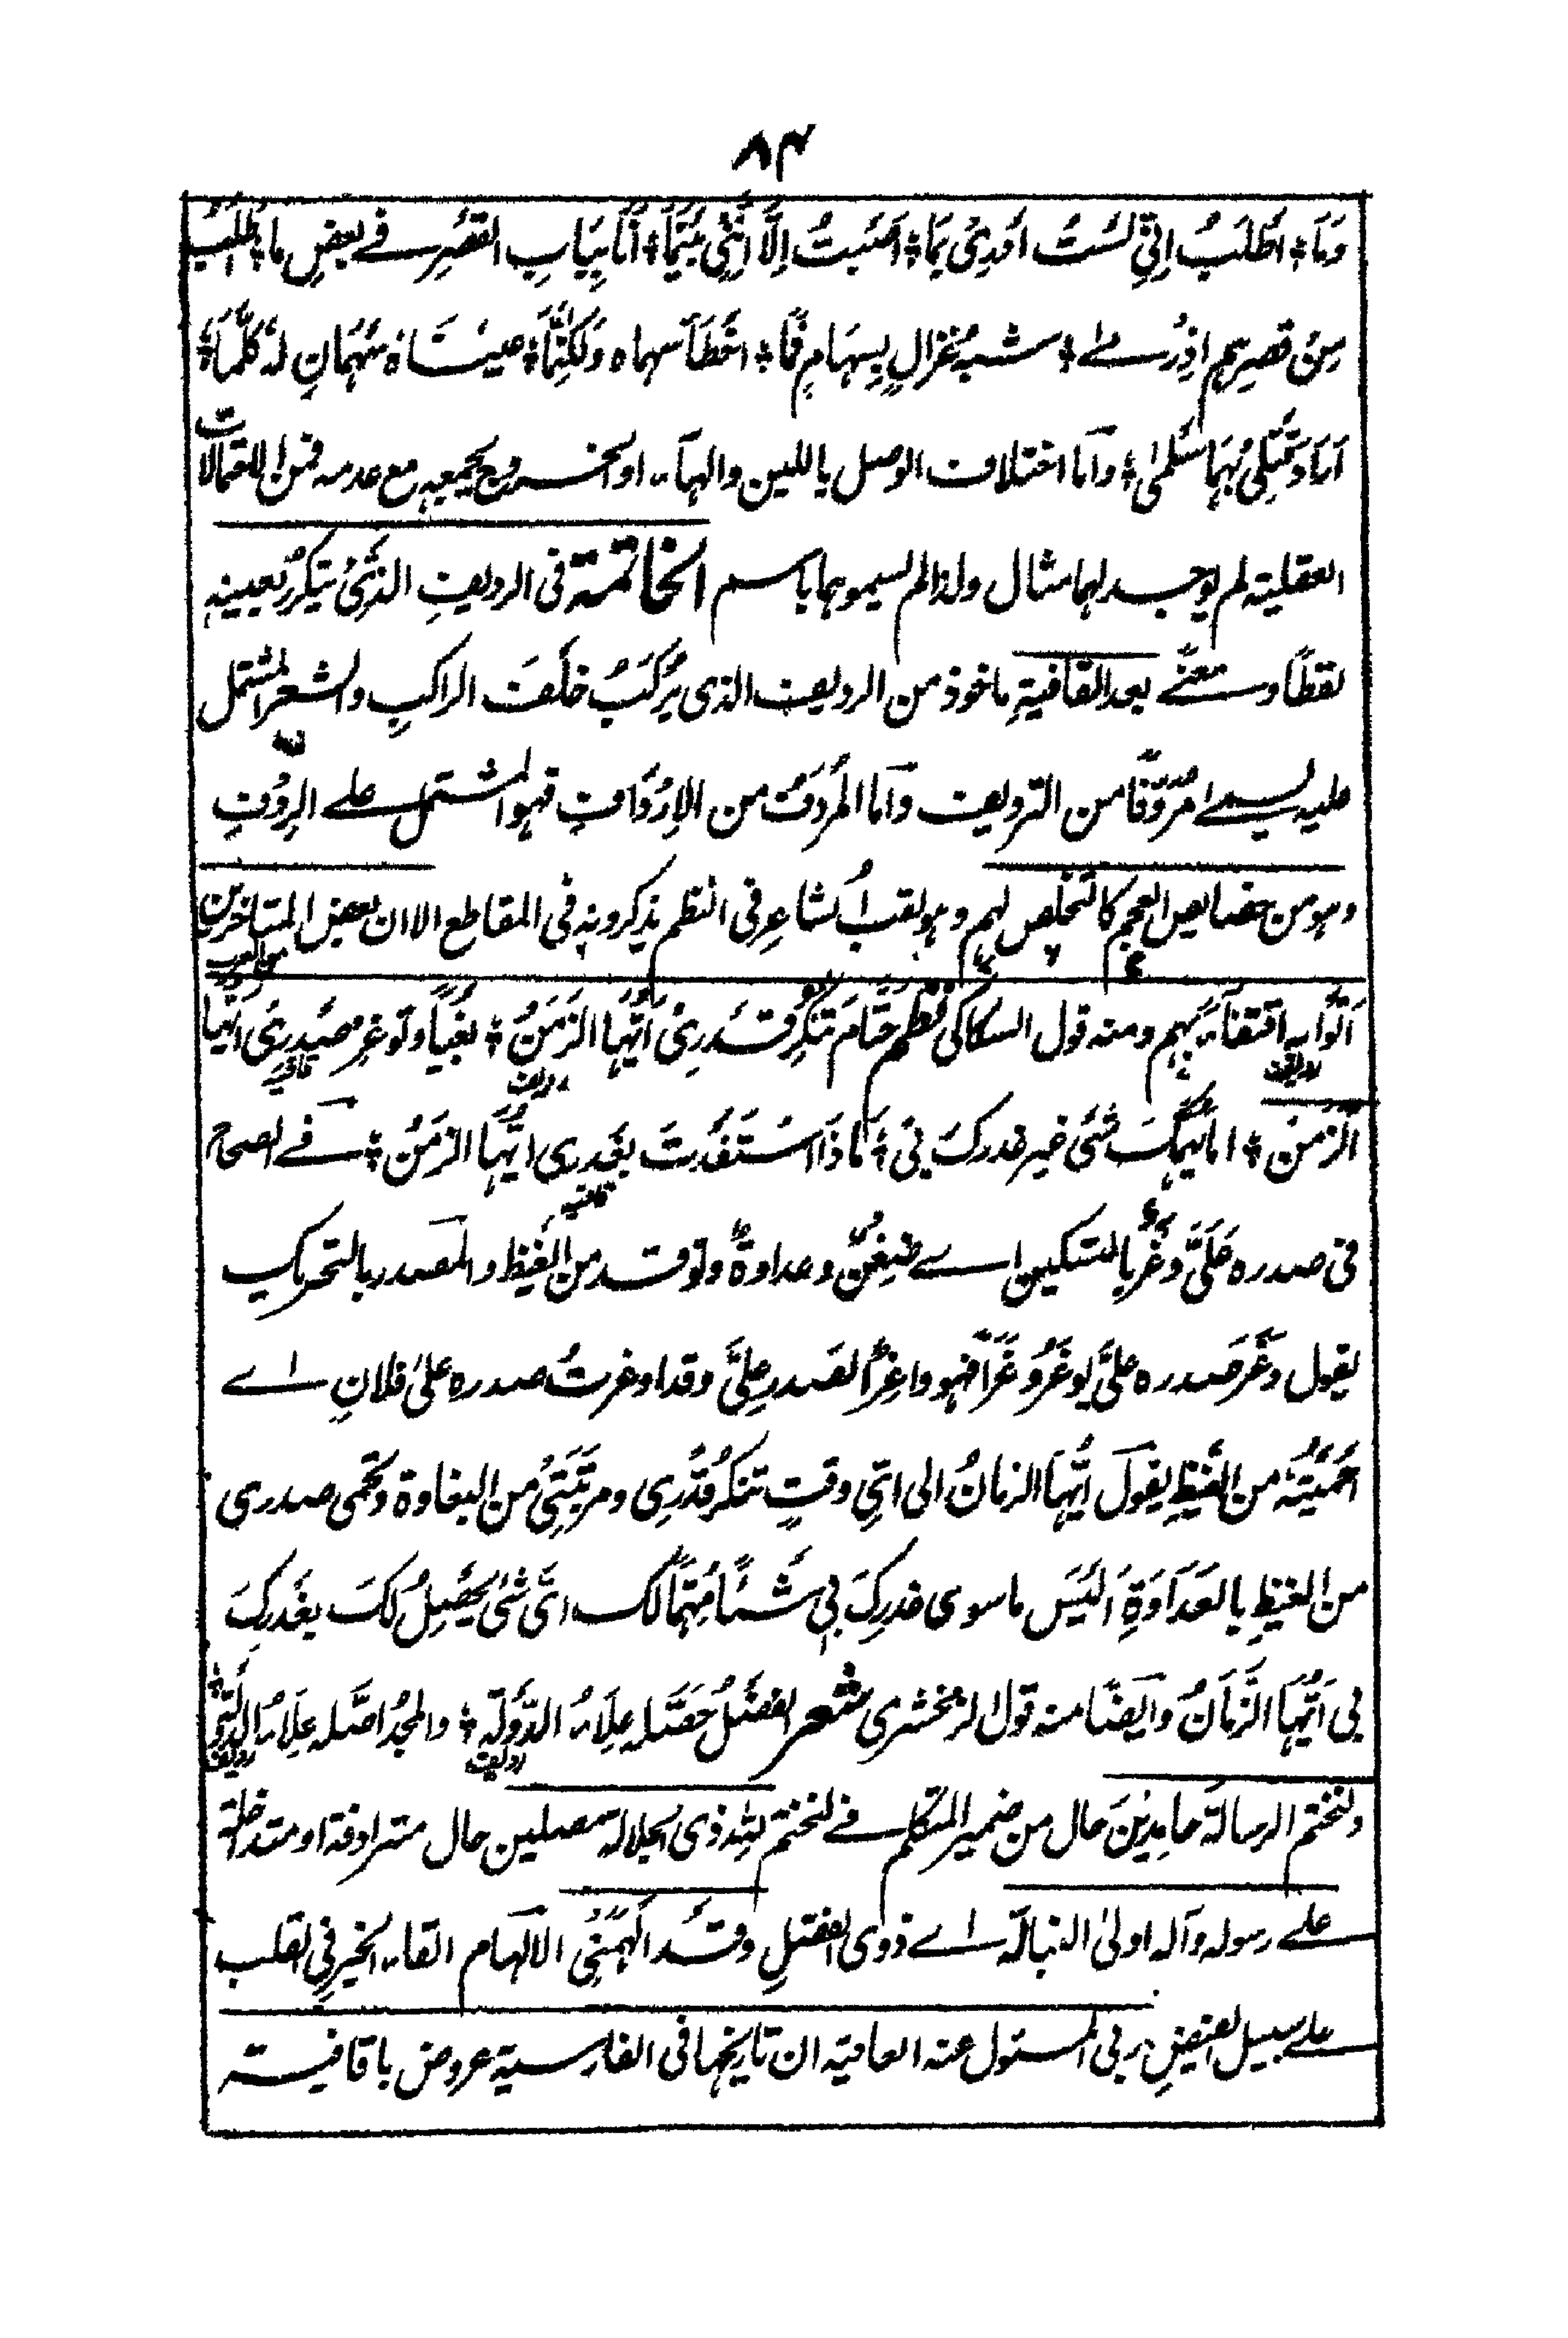 ٨٤
وَمَا ؞ اَطْلُبُ اِنِّي لَسْتُ اَدْرِيْ بِمَا ؞ اُصِبْتُ اِلَّا اَنَّنِيْ بَيْنَمَا ؞ اَنَا بِبَابِ القَصْرِ في بعضِ ما ؞ اَطْلُبُ
مِنْ قصرِهم اذ رمى ؞ شبه غزالٍ بِسِهَامٍ فَمَا ؞ اَخْطَأَ سهماه وَلٰكِنَّمَا ؞ عيناه سَهْمَانِ لَهُ كُلَّمَا ؞
اَرَادَ قَتْلِيْ بِهِمَا سَلَّمَا ؞ وَاَما اختلاف الوصل باللين والهاء او الخروج بجميعه مع عدمه فمن الاحتمالات
العقلية لم يوجد لهما مثال ولذا لم يسموهما باسم الخاتمة فى الرديفِ الَّذِيْ يتكررُ بعينه
لفظًا ومعنًى بعد القافيةِ ماخوذ من الرديف الذى يَرْكَبُ خَلْفَ الراكبِ والشعر المشتمل
عليه يسمى مُرَدَّفًا من الترديف وَاَما المُرْدَفُ من الاِرْدَافِ فهو المشتمل على الرِدْفِ
وهو من خصايص العجم كالتخلص لهم وهو لقب الشاعرِ فى النظم يذكرونه فى المقاطع الا ان بعض المتاخرين
من العرب
اَتَوْا به اقتفاءً بهم ومنه قول السكاكى نظم حَتَّامَ تُنْكِرُ قَدْرِيْ اَيُّهَا الزَمَنُ ؞ بغيًا وتوغر صَدْرِيْ اَيُّهَا
رديف قافيه
اَلزَّمَنُ ؞ اما يُهِمُّكَ شئ غير غدركَ بِيْ ؞ مَا ذَا اسْتَفَدْتَ بِغَدْرِى ايُّهَا الزمَنُ ؞ فے الصحاح
رديف قافيه
فى صدره عَلَيَّ وَغْرٌ بالتسكين اے ضِغْنٌ وعداوةٌ وتوقد من الغيظ والمصدر بالتحريك
يقول وَغِرَ صدره عَلَيَّ يوغَرُ وَغَرًا فهو واغِرُ الصدرِ عَلَيَّ وقد اوغرتُ صدره على فلانٍ اے
اَحْمَيْتُهُ من الغيظِ يقول اَيُّهَا الزمانُ الى اَيِّ وقتٍ تنكر قَدْرِى ومرتبتي من البغاوة وتُحمى صدرى
من الغيظِ بالعَدَاوَةِ اَلَيْسَ ما سوى غدركَ بى شَيْئًا مُهِمًّا لك اىّ شئٍ يَحْصُلُ لكَ بغدركَ
بى اَيُّهَا الزَّمَانُ وَاَيْضًا منه قول الزمخشرى شعر الفضلُ حَصَّله عَلَاءُ الدَّوْلَةِ ؞ والمجدُ اصَّله عَلَاءُ الدولة
رديف رديف
ولنختم الرسالة حامدِيْنَ حال من ضمير المتكلم فے لنختم لله ذى الجلالة مصلين حال مترادفة او متداخلة
على رسوله وآله اولى النبالة اے ذوى الفضل وقد اَلْهَمَنِيْ الالهام القاء الخير فى القلب
على سبيل الفيض ربى المسئول عنه العافية ان تاريخها فى الفارسية عروض با قافيته